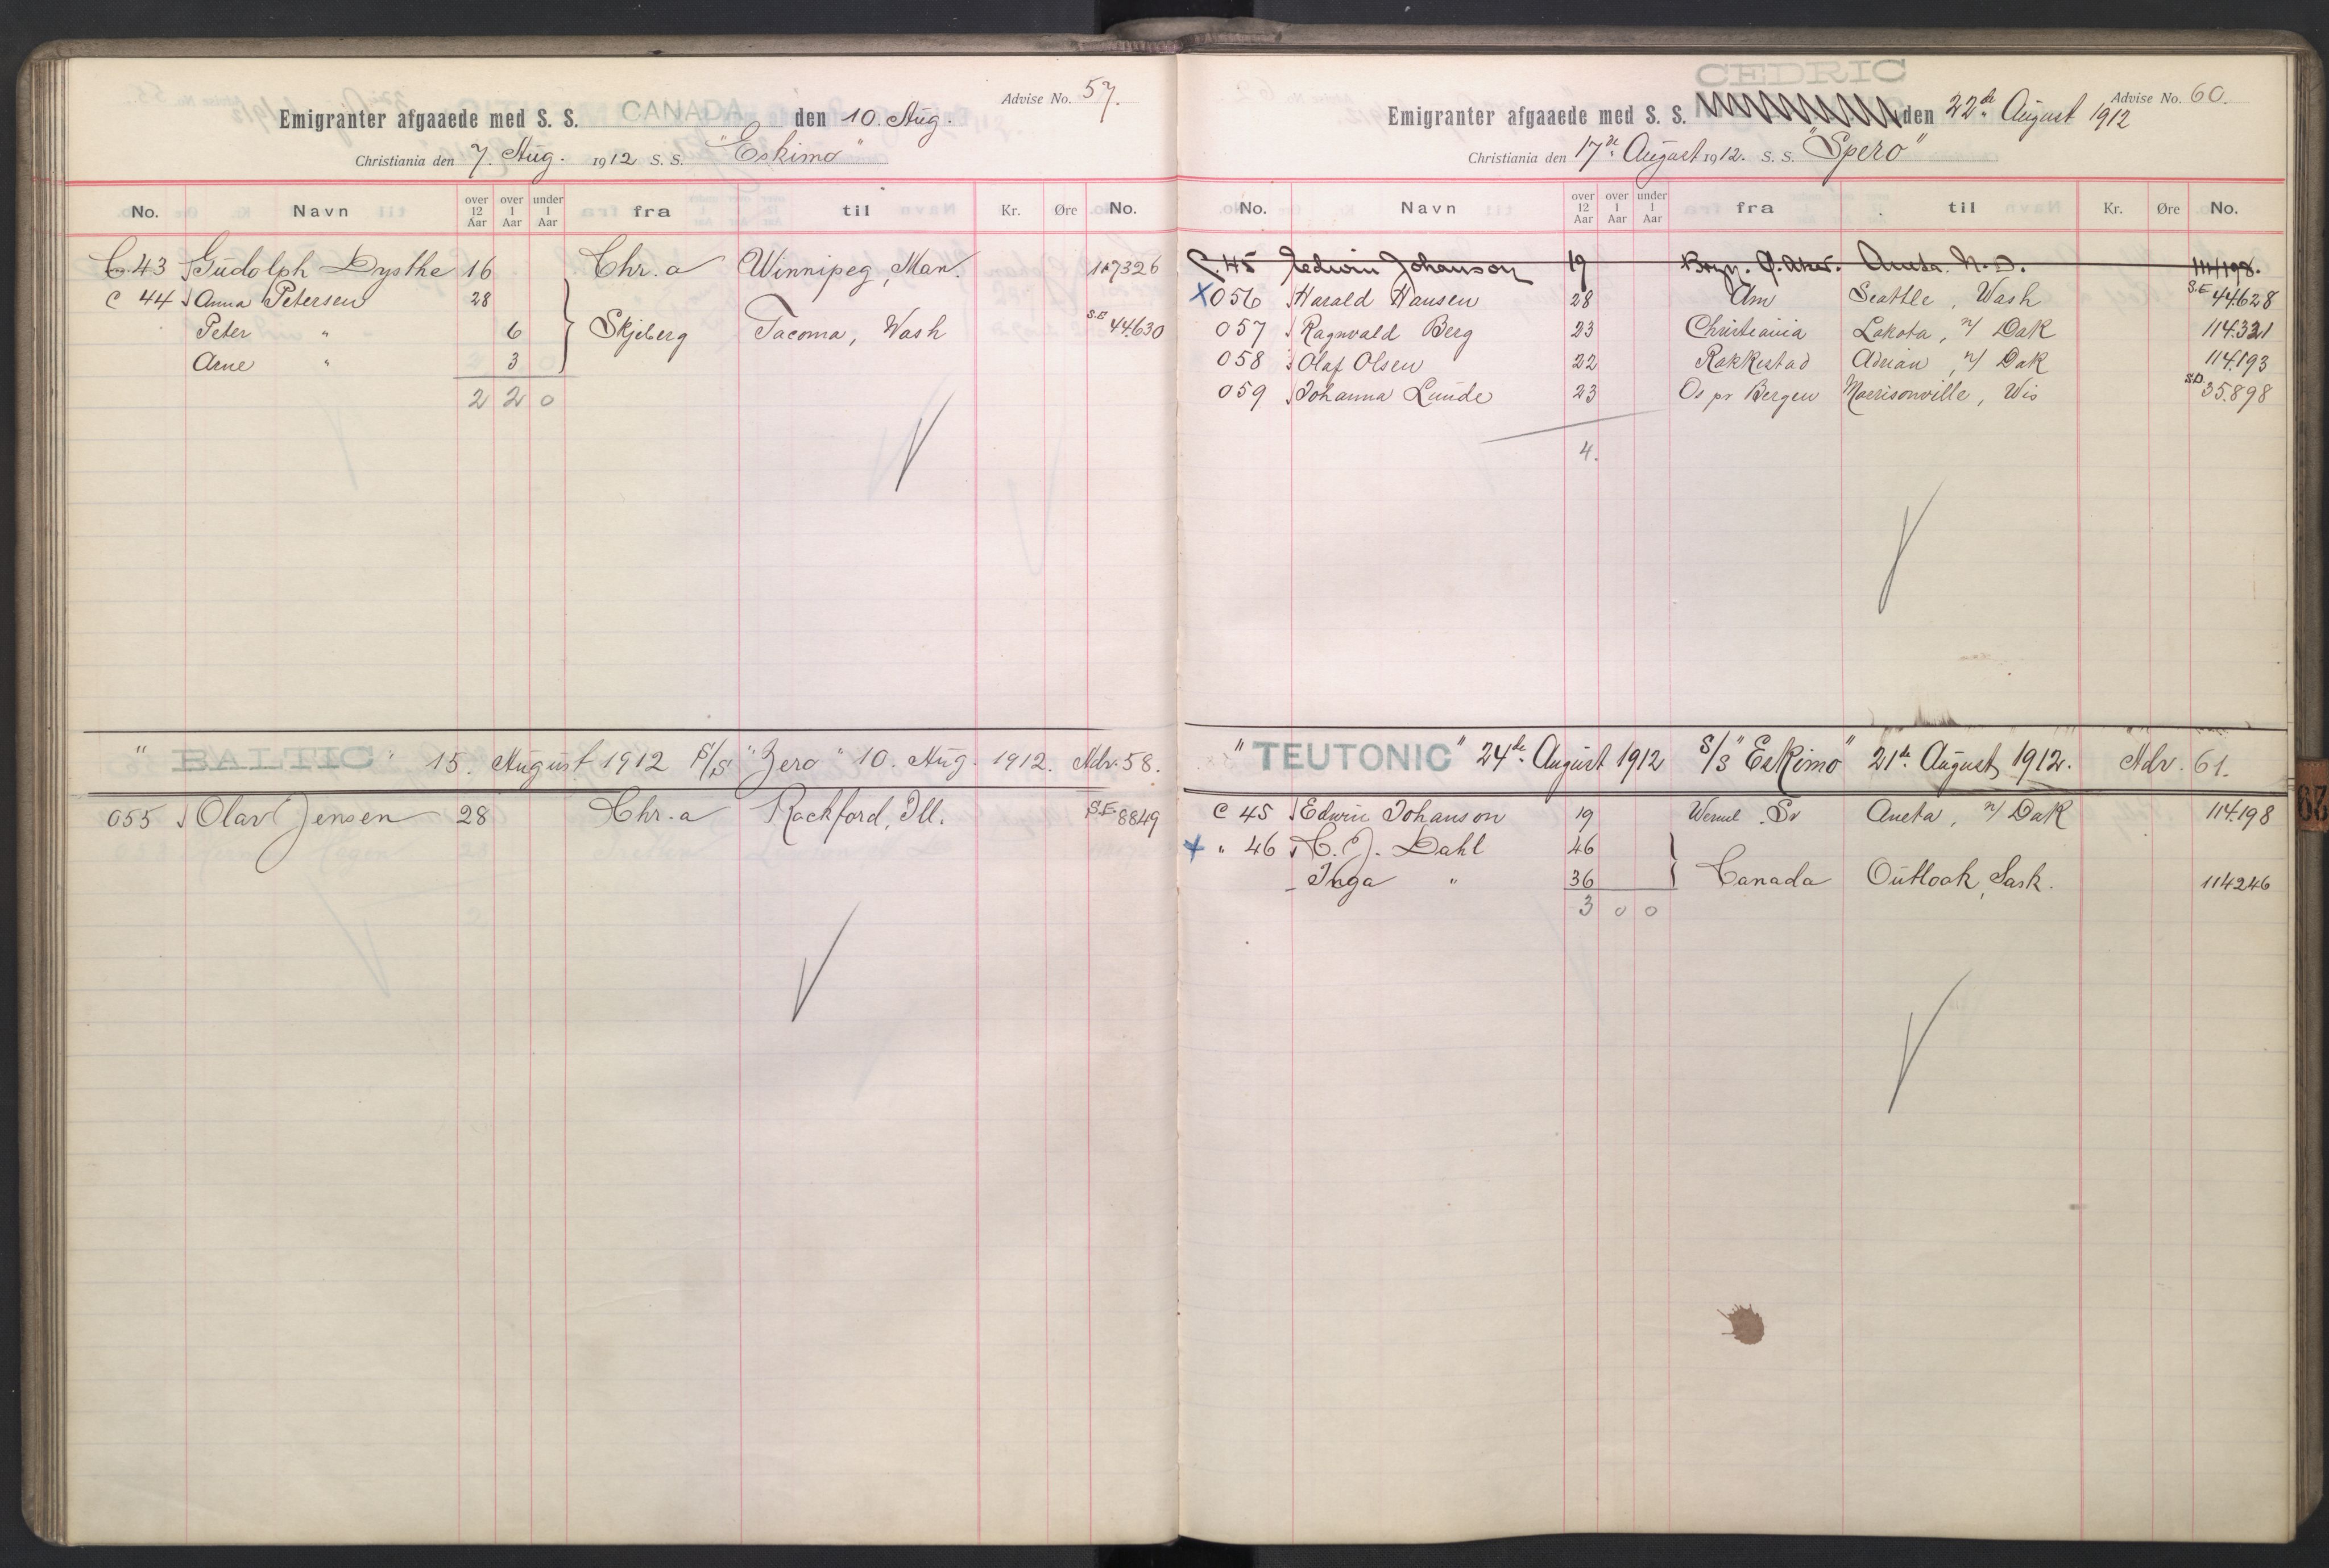 Advise No. 57.
Emigranter afgaaede med S. S. CANADA den 10. Aug.
Christiania den 7. Aug. 1912 S. S. "Eskimo"
No. Navn over 12 Aar over 1 Aar under 1 Aar fra til Kr. Øre No.
C. 43 Gudolph Dysthe 16 Chr.a Winnipeg, Man. 117326
C 44 Anna Petersen 28
Peter " 6 Skjeberg Tacoma, Wash S.E 44630
Arne " 3
2 2 0
" BALTIC " 15. August 1912 S/S "Zero" 10. Aug. 1912. Adv. 58.
055 Olav Jensen 28 Chr.a Rockford, Ill. S.E 8849
CEDRIC
Advise No. 60.
Emigranter afgaaede med S. S. den 22de August 1912
Christiania den 17de August 1912. S. S. "Spero"
No. Navn over 12 Aar over 1 Aar under 1 Aar fra til Kr. Øre No.
C. 45 Edwin Johanson 19 Bryn. Ø. Aker. Aneta. N. D. 114198.
X 056 Harald Hansen 28 Am Seattle, Wash S.E 44628
057 Ragnvald Berg 23 Christiania Lakota, N/ Dak 114.321
058 Olaf Olsen 22 Rakkestad Adrian, N/ Dak 114.193
059 Johanna Lunde 23 Os pr Bergen Morrisonville, Wis S.D 35.898
4.
"TEUTONIC" 24de August 1912 S/S "Eskimo" 21de August 1912. Adv. 61.
C 45 Edwin Johanson 19 Sv Aneta, N/ Dak 114.198
X " 46 C. J. Dahl 46
Inga " 36 Canada Outlook, Sask. 114246
3 0 0